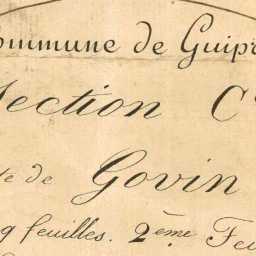 ommune de Guip
Section C
de Govin
feuilles. 2ème Feu